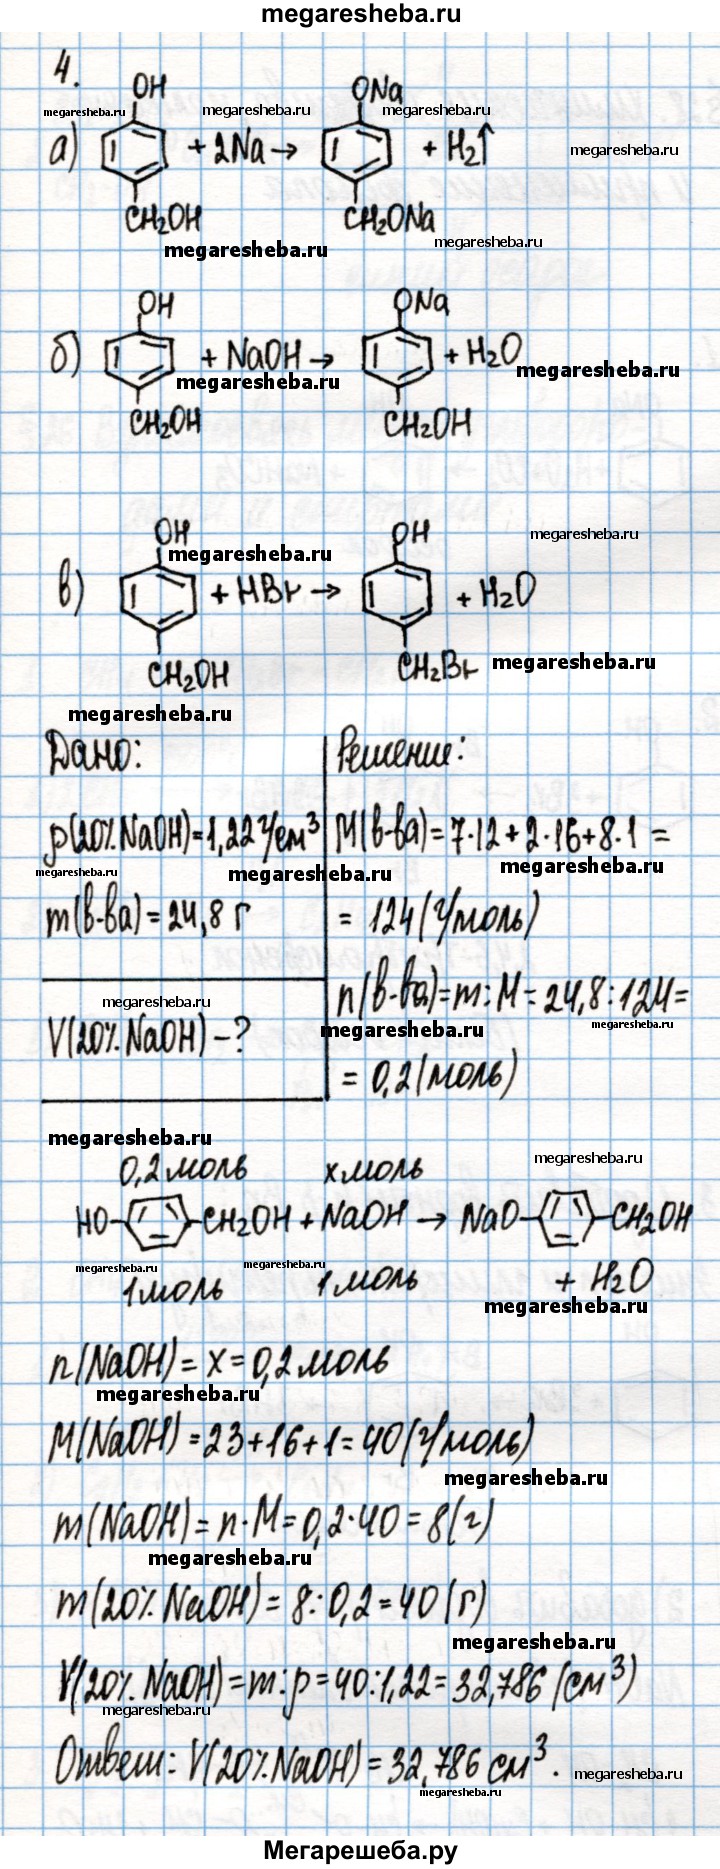 megaresheba.ru
4.
OH ONa
megaresheba.ru megaresheba.ru megaresheba.ru
а) + 2Na → + H2↑
megaresheba.ru
CH2OH CH2ONa
megaresheba.ru megaresheba.ru
OH ONa
б) + NaOH → + H2O
megaresheba.ru megaresheba.ru
CH2OH CH2OH
OH OH
megaresheba.ru megaresheba.ru
в) + HBr → + H2O
CH2OH CH2Br
megaresheba.ru
megaresheba.ru
Дано:
ρ(20% NaOH) = 1,22 г/см³
megaresheba.ru megaresheba.ru
m(в-ва) = 24,8 г
megaresheba.ru
V(20% NaOH) - ?
Решение:
M(в-ва) = 7·12 + 2·16 + 8·1 =
megaresheba.ru
= 124 (г/моль)
n(в-ва) = m : M = 24,8 : 124 =
megaresheba.ru megaresheba.ru
= 0,2 (моль)
megaresheba.ru
0,2 моль x моль
megaresheba.ru
HO- -CH2OH + NaOH → NaO- -CH2OH
megaresheba.ru megaresheba.ru
1 моль 1 моль + H2O
megaresheba.ru
n(NaOH) = x = 0,2 моль
megaresheba.ru
M(NaOH) = 23 + 16 + 1 = 40 (г/моль)
megaresheba.ru
m(NaOH) = n · M = 0,2 · 40 = 8 (г)
megaresheba.ru
m(20% NaOH) = 8 : 0,2 = 40 (г)
megaresheba.ru
V(20% NaOH) = m : ρ = 40 : 1,22 = 32,786 (см³)
megaresheba.ru
Ответ: V(20% NaOH) = 32,786 см³.
megaresheba.ru
megaresheba.ru
Мегарешеба.ру